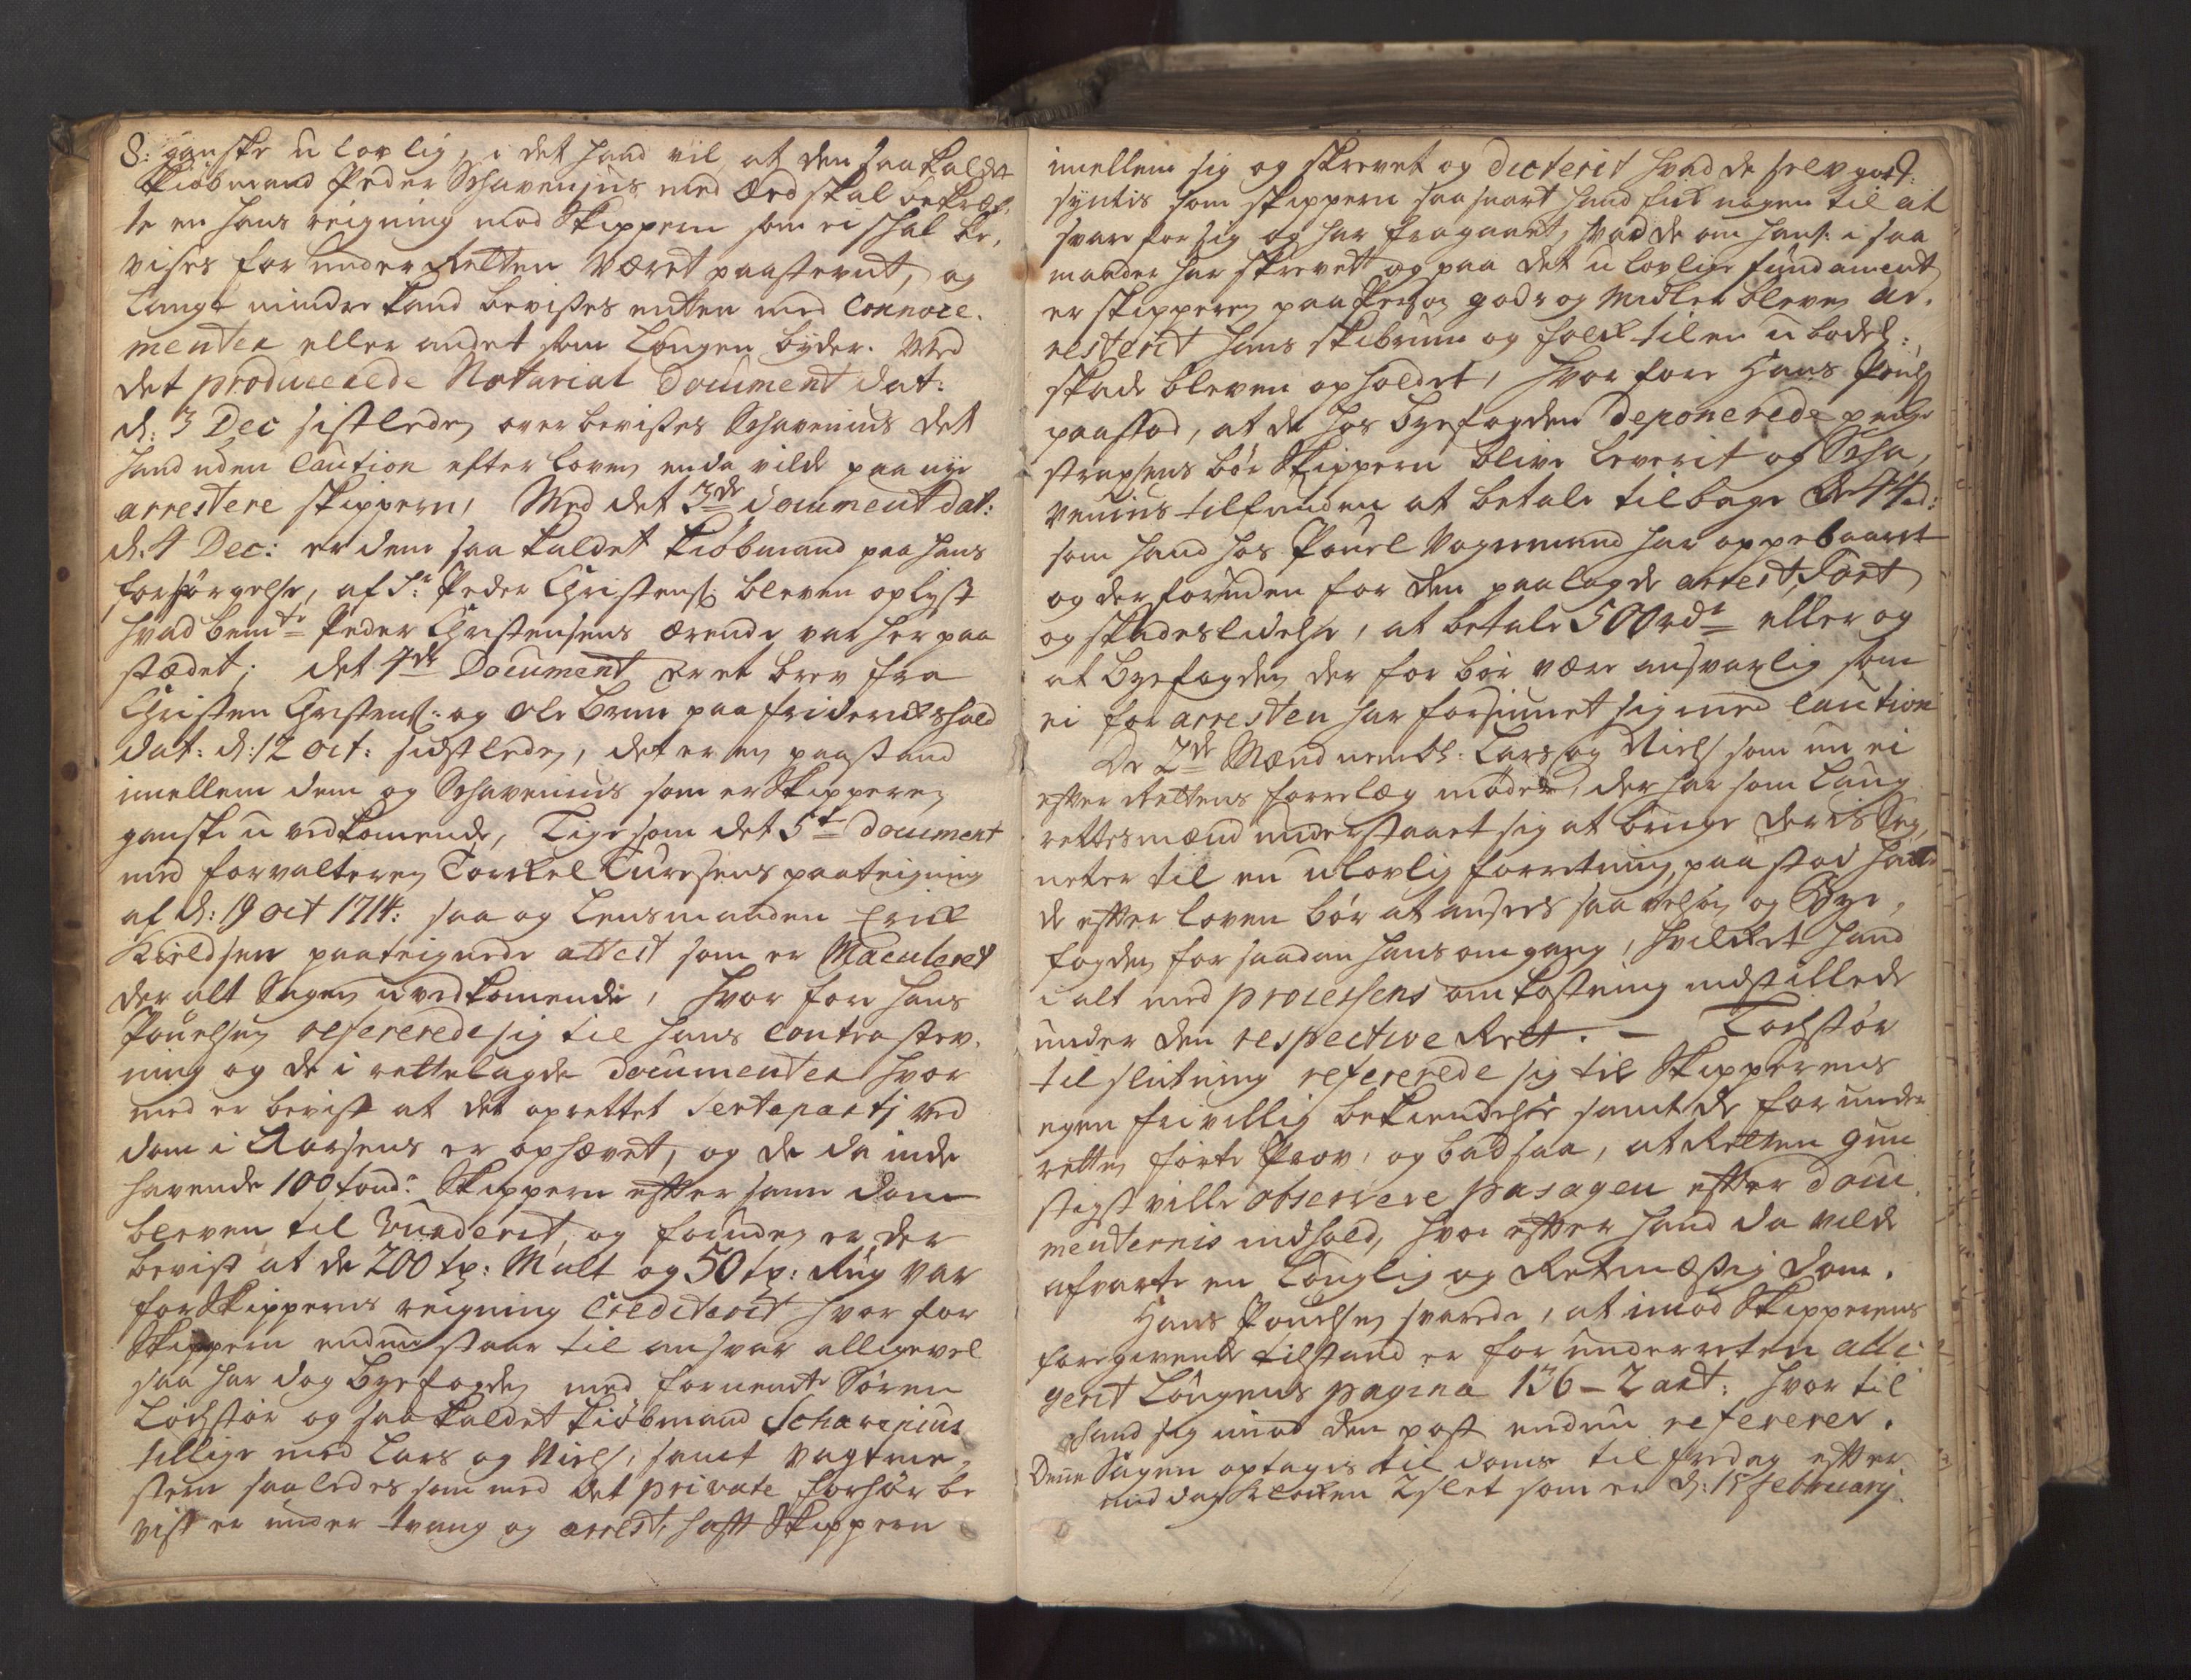 8: ganske u lovlig, i det hand vil at den saa kaldet
Kiøbmand Peder Schavenius med Æed skal bekræf-
te en hans reigning mod Skippern som ei skal be,
vises for under Retten Været paastevnt, og
langt mindre kand bevises enten med Connoce-
menter eller andet som Lougen byder. Med
det producerede Notarial Document dat:
d: 3 Dec sistleden over bevises Schavenius det
hand uden Caution efter loven enda vilde paa nye
arrestere skippern, Med det 3de document dat:
d: 4 Dec: er dem saa kaldet Kiøbmand paa hans
forspørgelse, af Sr: Peder Christens: bleven oplyst
hvad bemte Peder Christensens ærende var her paa
stædet; det 4de Document er et brev fra
Christen Christens: og Ole Brun paa friderickshald
dat: d: 12 oct: sidstleden, det er en paastand
imellem dem og Schavenius som er Skipperen
ganske u vedkomende, Lige som det 5te document
med forvalteren Torckel Turesens paateigning
af d: 19 oct 1714: saa og Lensmanden Erick
Kieldsen paateignede attest som er Maculeret
der alt Sagen u vedkomende, hvor fore Hans
Pouelsen refererede sig til hans Contra stev-
ning og de i rettelagde documenter hvor
med er bevist at det oprettet Serteparti ved
dom i Aarsens er ophævet, og de da inde
havende 100 tønd: Skippern efter samme dom
bleven til Vurderit, og foruden er der
bevist at de 200 tp: Malt og 50 tp: Rug var
for Skipperns reigning Crediterit hvor for
Skippern endnu staar til ansvar alligevel
saa har dog byefogden med fornemte Søren
Lochstør og saa kaldet kiøbmand Schavenius
tillige med Lars og Niels, samt vagtme-
stern saaledes som med det private forhør be
vist er under tvang og arrest, haft Skippern
imellem sig og skrevet og dicterit hvad de selv got
syntis som skippern saa snart hand fick nogen til at
svare for sig og har fragaaet, hvad de om hans i saa
maader har skrevet og paa det u lovlige fundament
er skipperen paa Person gods og Midler bleven ar-
resterit hans skibrum og folck til en u bodel:
skade bleven opholdet, hvor fore Hans Pouls
paastod, at de hos byefogden deponerede penge
strapsens bør Skippern blive leverit og Scha,
venius tilfunden at betale tilbage de 44 rd:
som hand hos Pouel Vognmand har oppebaaret
og der foruden for den paalagde arrest, Tort
og skadeslidelse, at betale 500 rdr eller og
at byefogden der for bør være ansvarlig som
ei for arresten har forsiunet sig med Caution
De 2de Mænd nembl: Lars og Niels som nu ei
efter Rettens forrelæg møder, der har som Laug
rettesmænd understaaet sig at bruge deres Sig,
neter til en ulovlig forretning, paastod hand
de efter loven bør at ansees saa velsom og Bye,
fogden for saadan hans omgang, hvilcket hand
i alt med processens omkostning indstillede
under den respective Rett. – Lochstør
til slutning refererede sig til Skipperens
egen frivillig bekiendelse samt de for under
retten førte Prov, og bad saa, at Retten gun
stigst ville observere pasagen efter docu
menternis indhold, hvor efter hand da vilde
afvarte en Louglig og Retmæssig dom.
Hans Pouelsen svarede, at imod Skipperens
foregivende tilstand er for underretten alle-
gerit Lougens pagina 136 – 2 art: hvor til
hand sig imod den post endnu referere.
Denne Sagen optages til doms til fredag efter
mid dag Klocken 2 slet som er d: 15 februarij.